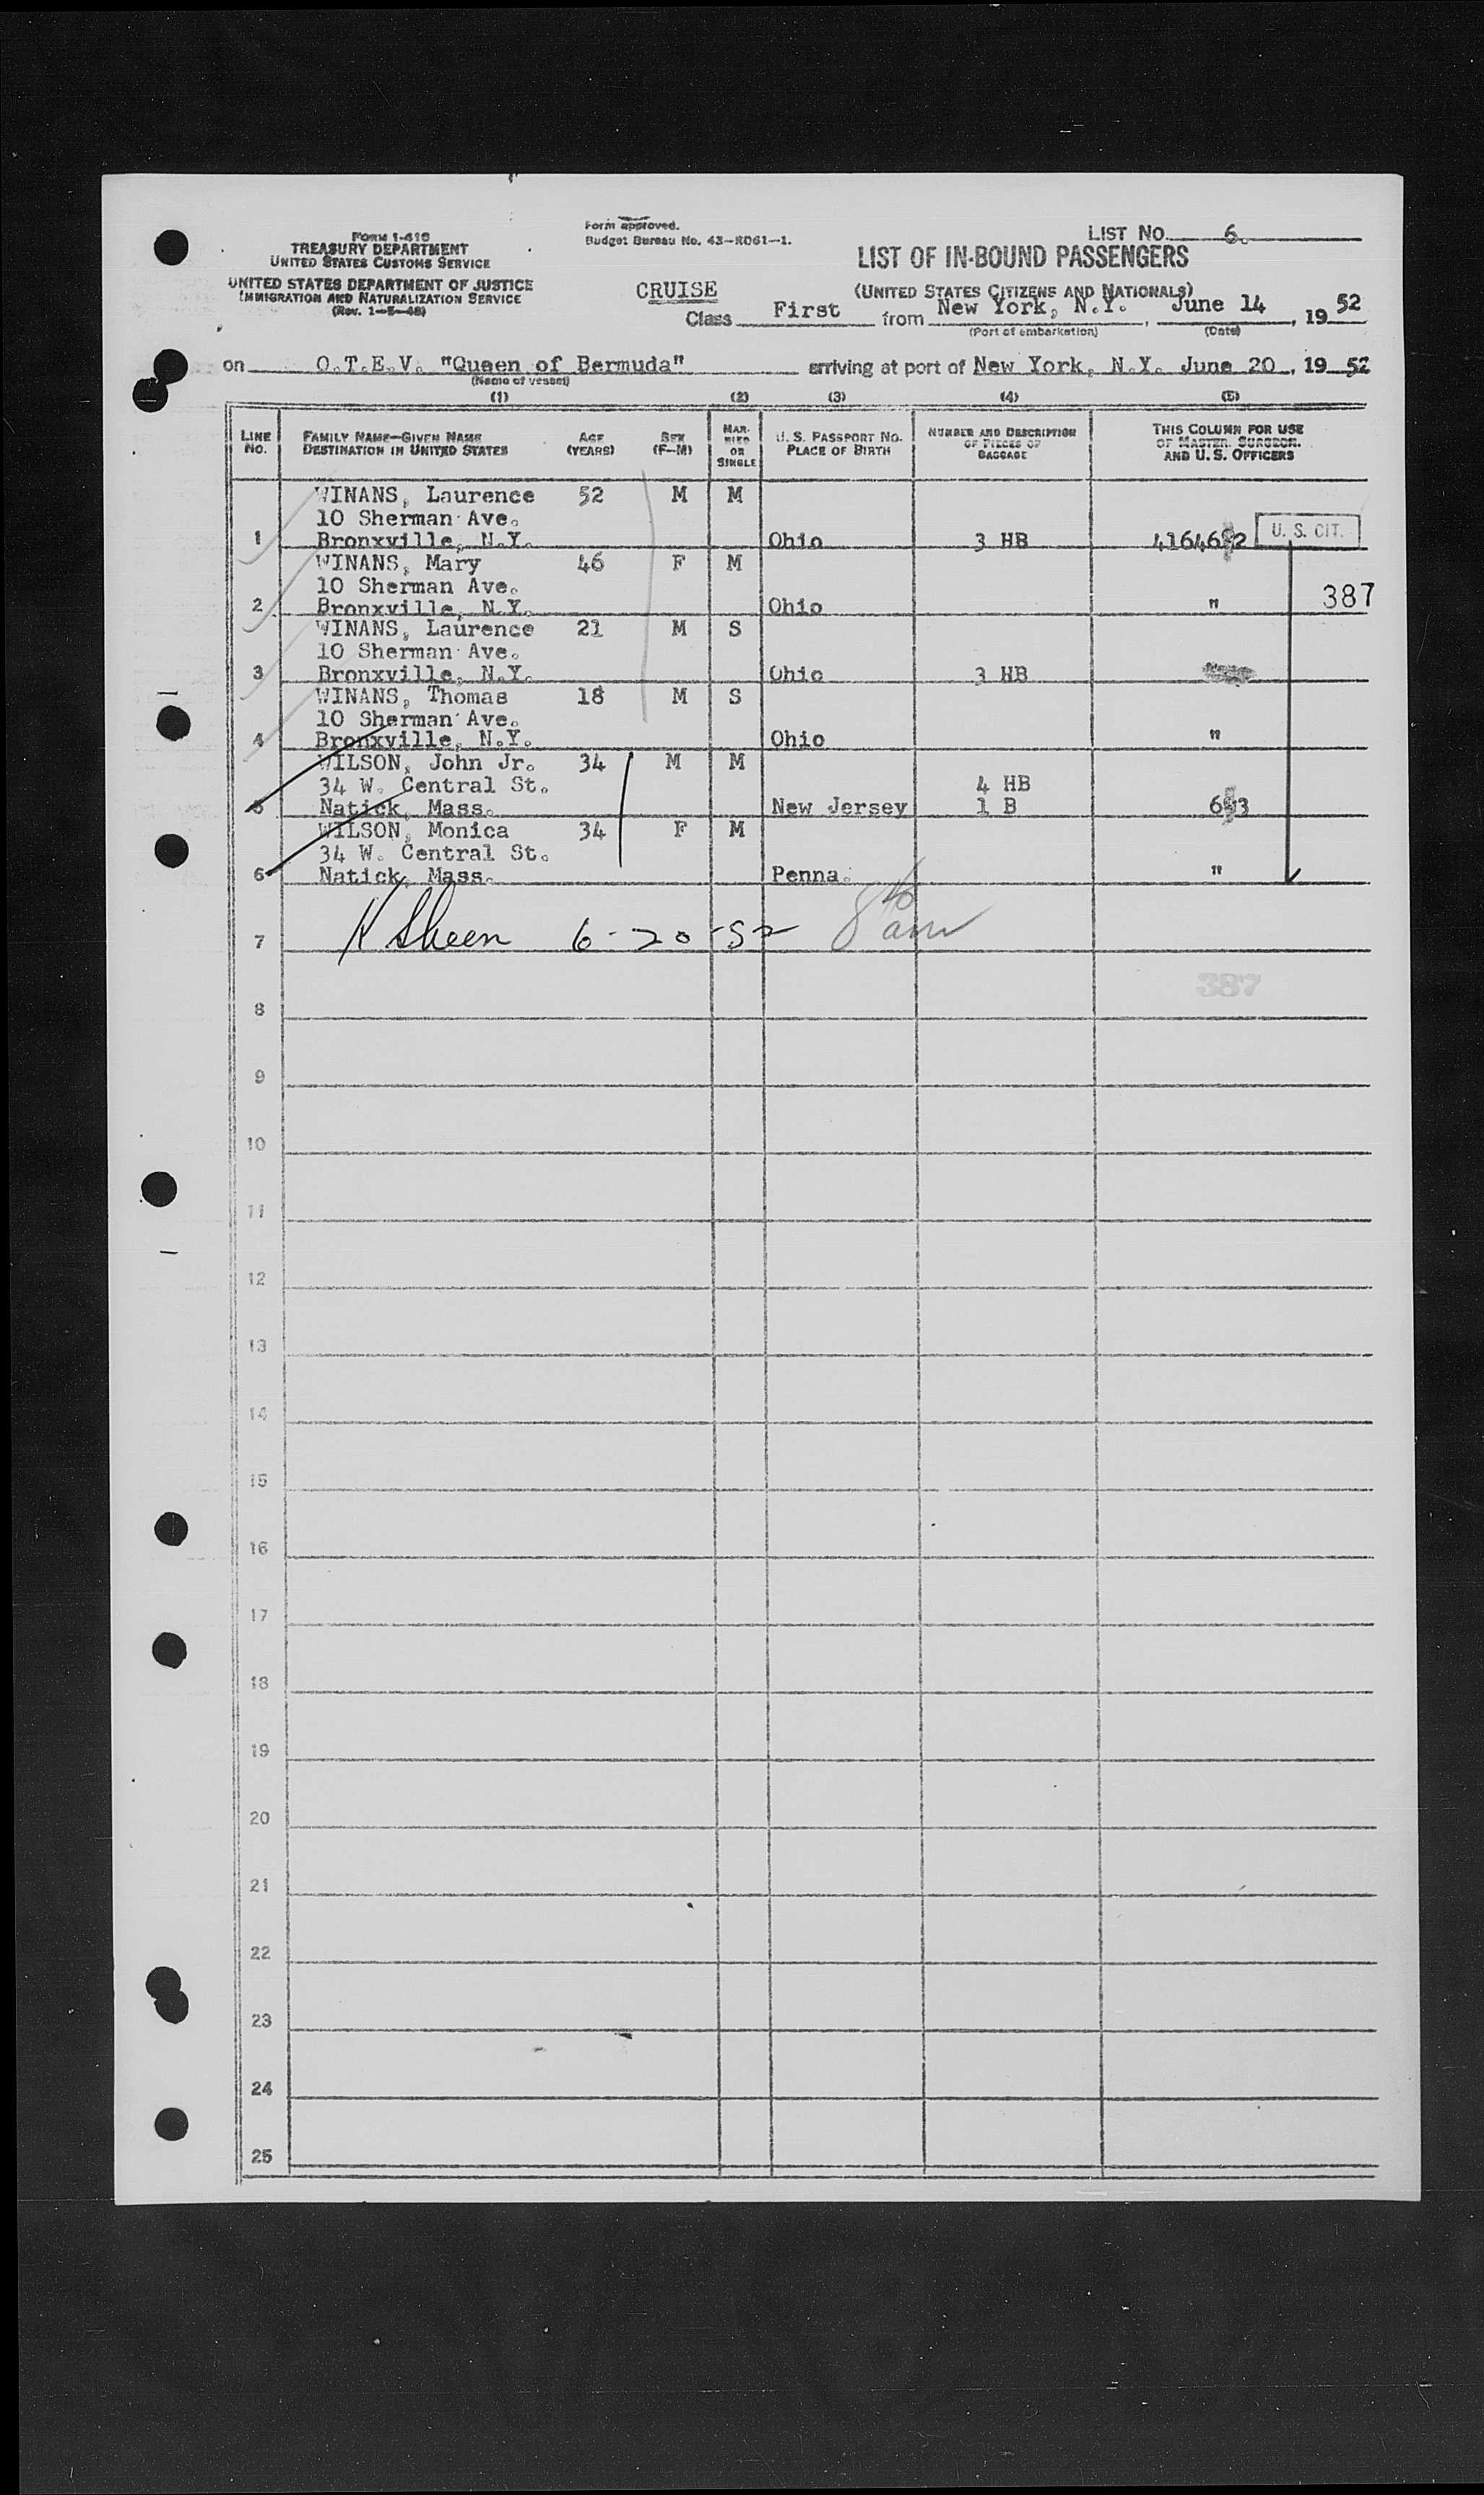 Form I-416
TREASURY DEPARTMENT
UNITED STATES CUSTOMS SERVICE
UNITED STATES DEPARTMENT OF JUSTICE
IMMIGRATION AND NATURALIZATION SERVICE
(Rev. 1-5-48)
Form approved.
Budget Bureau No. 43-R061-1.
LIST No. 6.
LIST OF IN-BOUND PASSENGERS
(UNITED STATES CITIZENS AND NATIONALS)
CRUISE
Class First from New York, N.Y., June 14, 1952
(Port of embarkation) (Date)
on O.T.E.V. "Queen of Bermuda" arriving at port of New York, N.Y. June 20, 19 52
(Name of vessel)
(1) (2) (3) (4) (5)
LINE No. FAMILY NAME—GIVEN NAME DESTINATION IN UNITED STATES AGE (YEARS) SEX (F—M) MARRIED OR SINGLE U. S. PASSPORT No. PLACE OF BIRTH NUMBER AND DESCRIPTION OF PIECES OF BAGGAGE THIS COLUMN FOR USE OF MASTER, SURGEON, AND U. S. OFFICERS
WINANS, Laurence 52 M M
10 Sherman Ave.
1 Bronxville, N.Y. Ohio 3 HB U. S. CIT.
WINANS, Mary 46 F M
10 Sherman Ave.
2 Bronxville, N.Y. Ohio " 387
WINANS, Laurence 21 M S
10 Sherman Ave.
3 Bronxville, N.Y. Ohio 3 HB
WINANS, Thomas 18 M S
10 Sherman Ave.
4 Bronxville, N.Y. Ohio "
WILSON, John Jr. 34 M M
34 W. Central St. 4 HB
5 Natick, Mass. New Jersey 1 B
WILSON, Monica 34 F M
34 W. Central St.
6 Natick, Mass. Penna. "
7 K Sheen 6-20-52
387
8
9
10
11
12
13
14
15
16
17
18
19
20
21
22
23
24
25